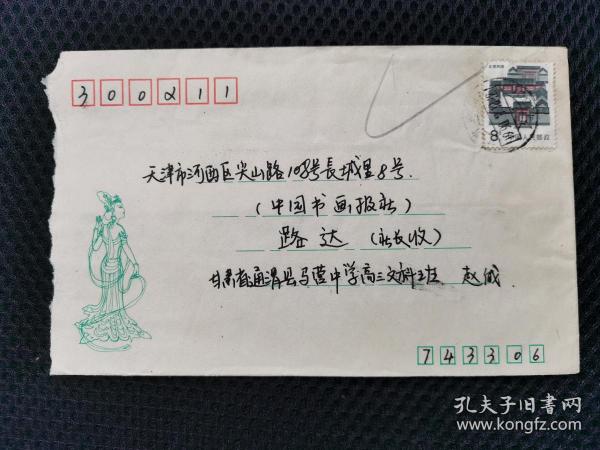 300211
天津市河西区尖山路108号長城里8号.
(中国书画报社)
路达 (社长收)
甘肃省通渭县马营中学高三文科班 赵成
743306
8
中国人民邮政
孔夫子旧书网
www.kongfz.com